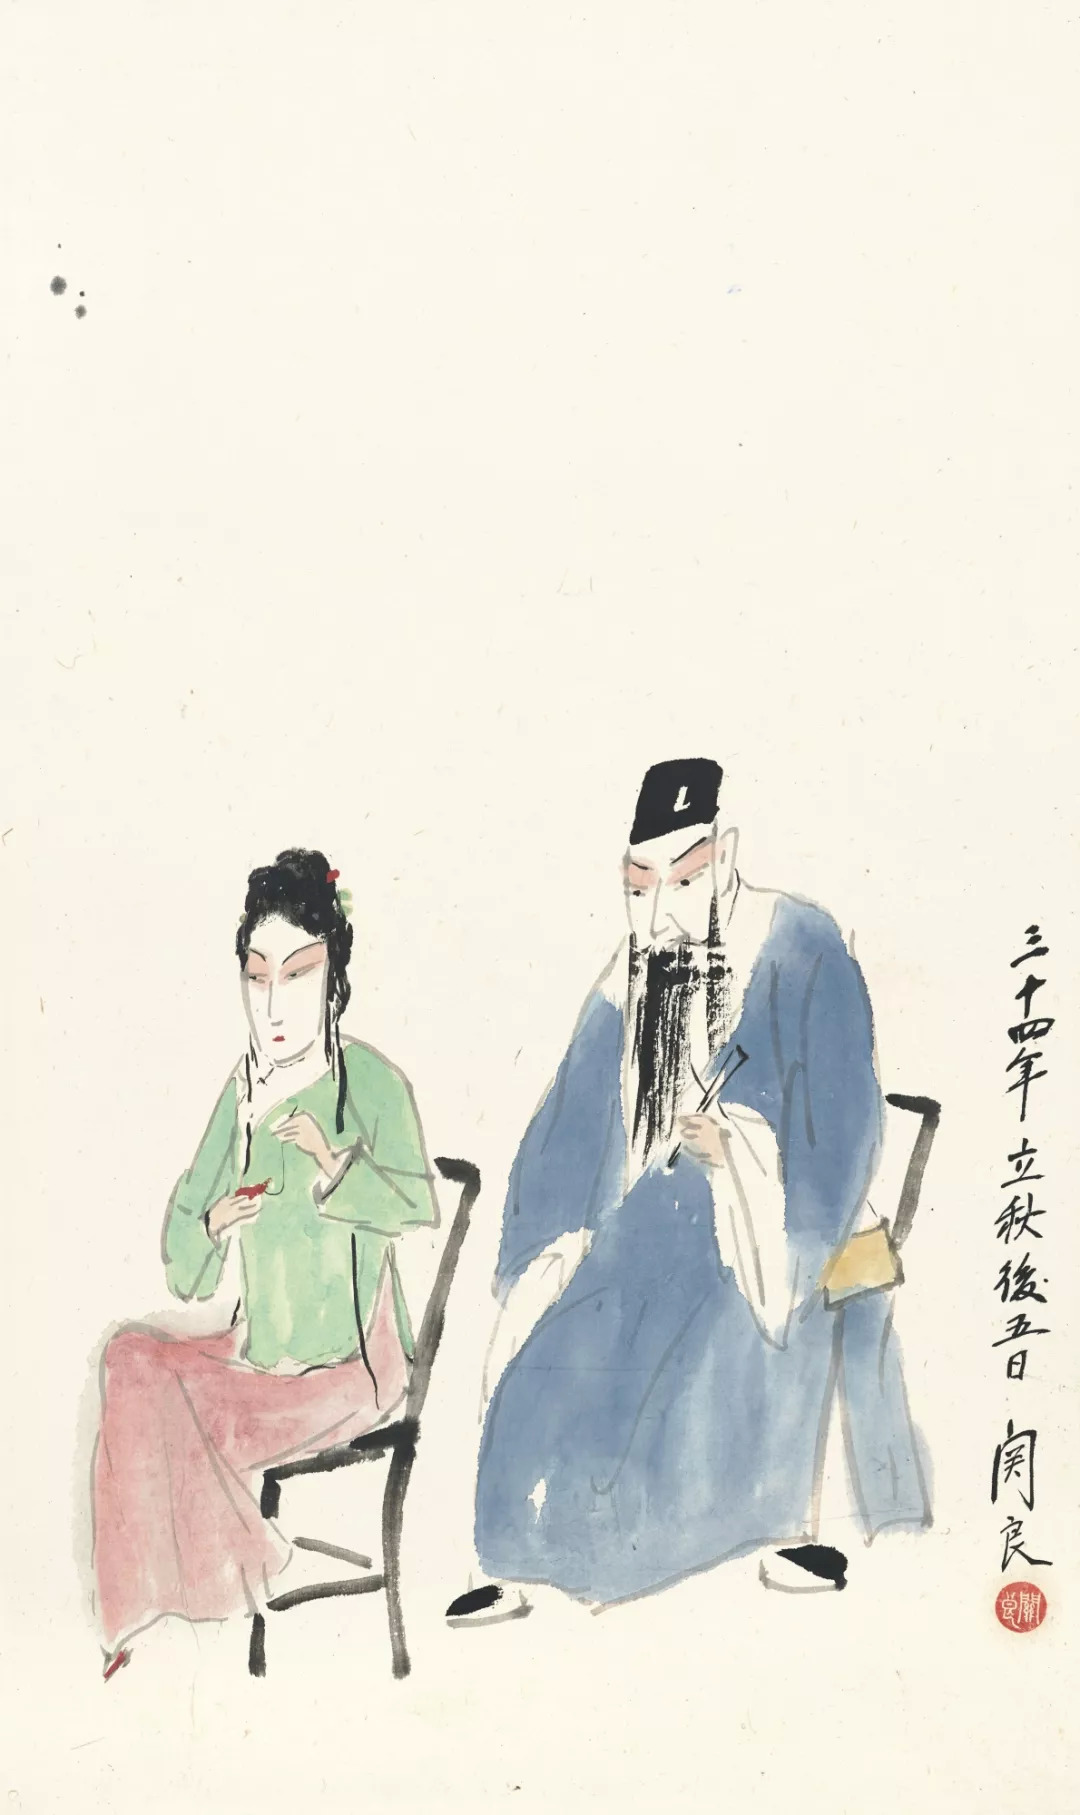 三十四年立秋後五日 関良
關良